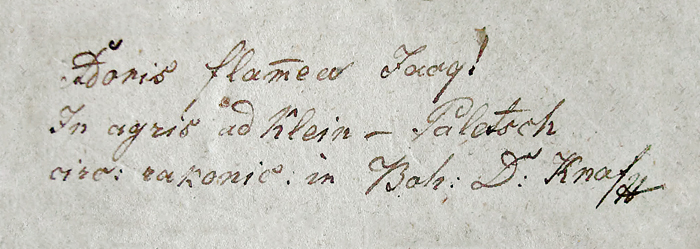 Adonis flam̅ea Jacq!
In agris ad Klein – Paletsch
circ: rakonic: in Boh: D: Knaf